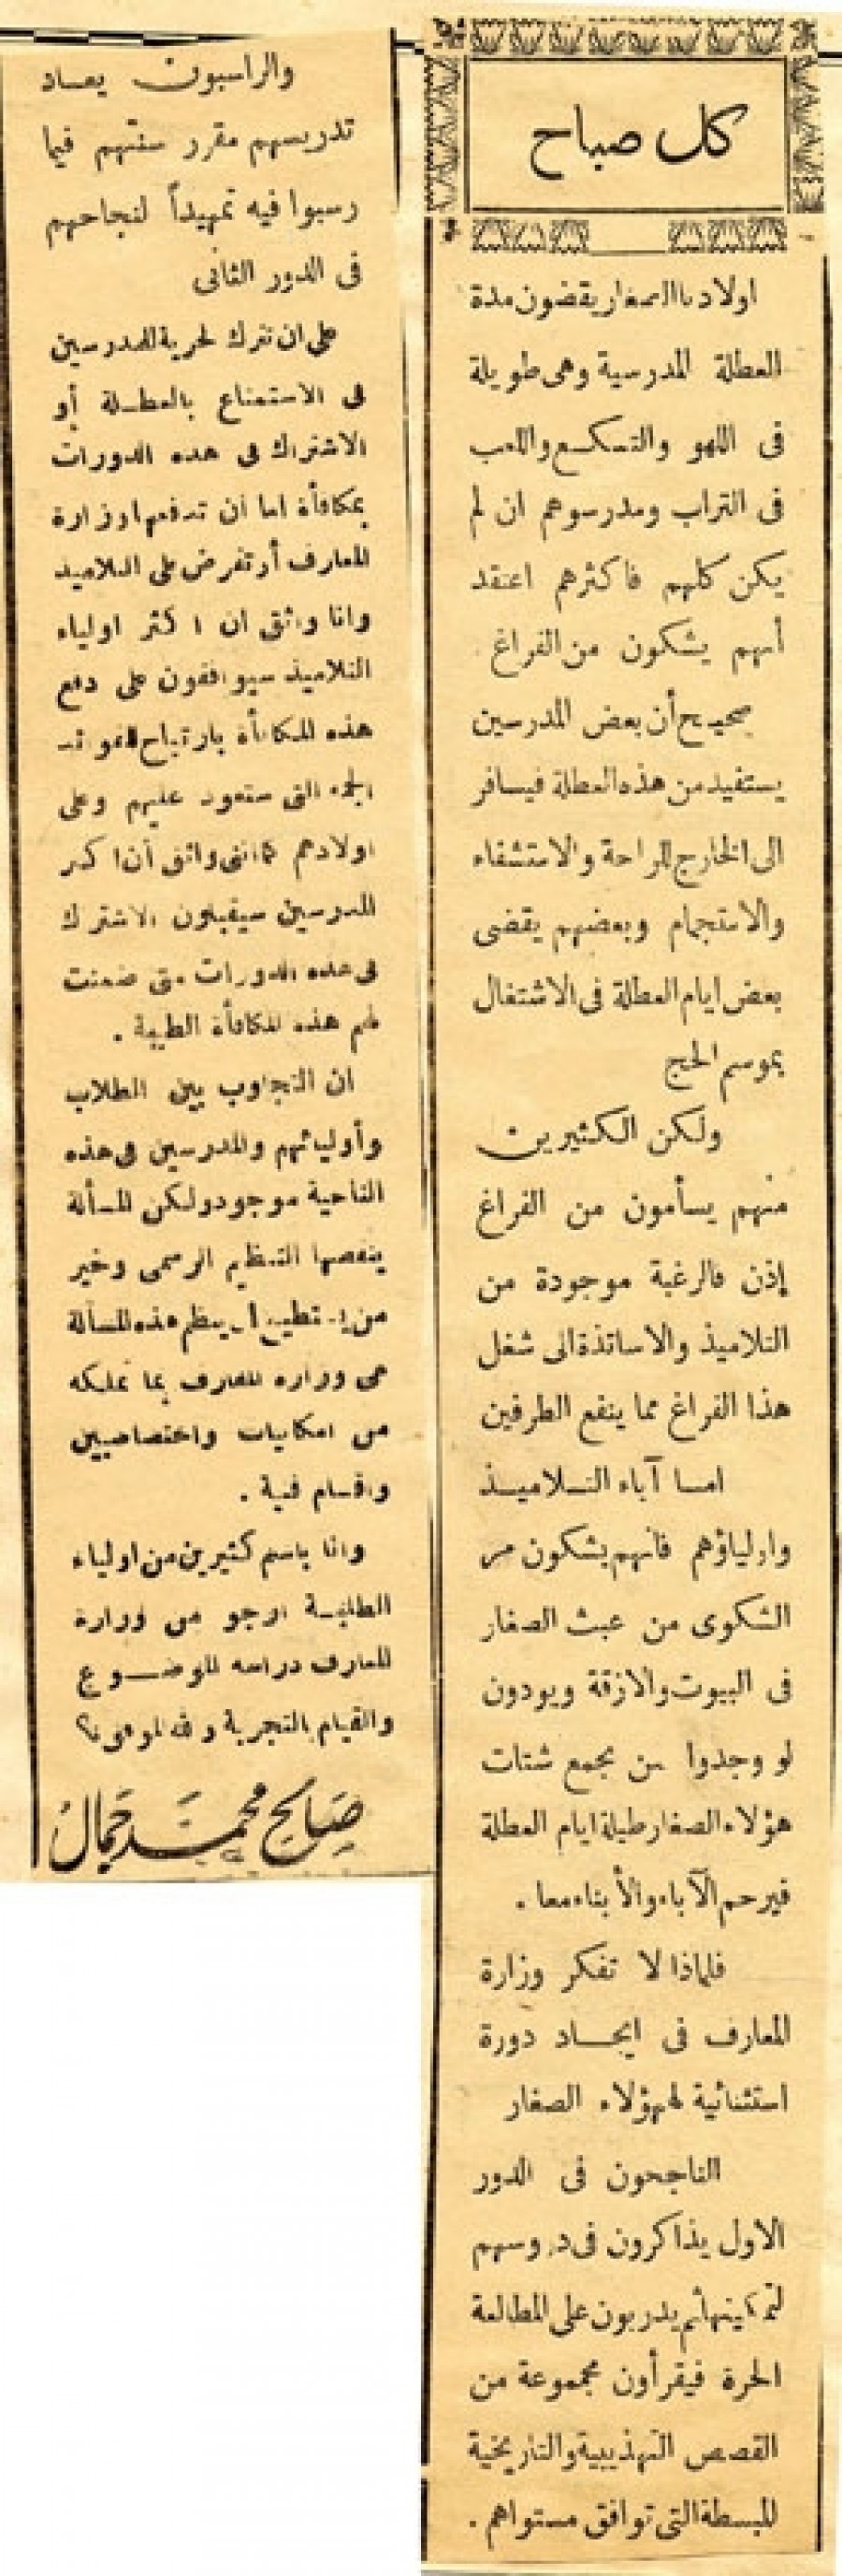 كل صباح
اولادنا الصغار يقضون مدة
العطلة المدرسية وهى طويلة
فى اللهو والتسكع واللعب
فى التراب ومدرسوهم ان لم
يكن كلهم فاكثرهم اعتقد
أنهم يشكون من الفراغ
صحيح أن بعض المدرسين
يستفيد من هذه العطلة فيسافر
الى الخارج للراحة والاستشفاء
والاستجمام وبعضهم يقضى
بعض ايام العطلة فى الاشتغال
بموسم الحج
ولكن الكثيرين
منهم يسأمون من الفراغ
إذن فالرغبة موجودة من
التلاميذ والاساتذة الى شغل
هذا الفراغ مما ينفع الطرفين
اما آباء التلاميذ
واولياؤهم فانهم يشكون مر
الشكوى من عبث الصغار
فى البيوت والازقة ويودون
لو وجدوا من يجمع شتات
هؤلاء الصغار طيلة ايام العطلة
فيرحم الآباء والأبناء معا .
فلماذا لا تفكر وزارة
المعارف فى ايجاد دورة
استثنائية لهؤلاء الصغار
الناجحون فى الدور
الاول يذاكرون فى دروسهم
لتمكينها ثم يدربون على المطالعة
الحرة فيقرأون مجموعة من
القصص التهذيبية والتاريخية
المبسطة التى توافق مستواهم .
والراسبون يعاد
تدريسهم مقرر سنتهم فيما
رسبوا فيه تمهيداً لنجاحهم
فى الدور الثانى
على ان تترك لحرية المدرسين
فى الاستمتاع بالعطلة أو
الاشتراك فى هذه الدورات
بمكافأة اما ان تدفعها وزارة
المعارف أو تفرض على التلاميذ
وانا واثق ان اكثر اولياء
التلاميذ سيوافقون على دفع
هذه المكافأة بارتياح للفوائد
الجمة التى ستعود عليهم وعلى
اولادهم كما اننى واثق أن اكثر
المدرسين سيقبلون الاشتراك
فى هذه الدورات متى ضمنت
لهم هذه المكافأة الطيبة .
ان التجاوب بين الطلاب
وأوليائهم والمدرسين فى هذه
الناحية موجود ولكن المسألة
ينقصها التنظيم الرسمى وخير
من يستطيع أن ينظم هذه المسألة
هى وزارة المعارف بما تملكه
من امكانيات واختصاصيين
واقسام فنية .
وانا باسم كثيرين من اولياء
الطلبة ارجو من وزارة
المعارف دراسة الموضوع
والقيام بالتجربة والله الموفق ؟
صالح محمد جمال